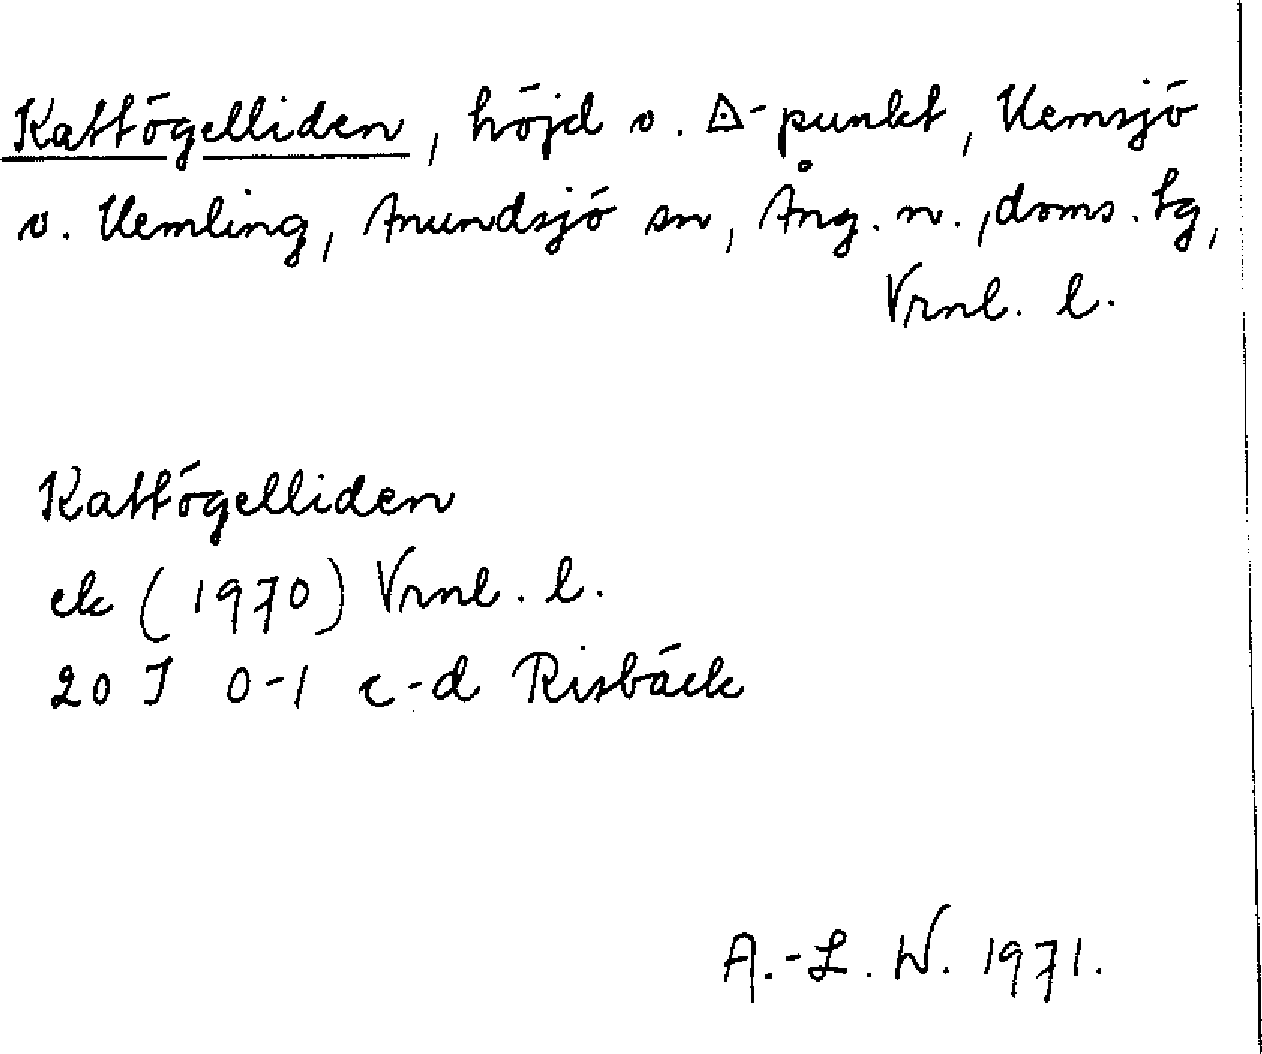 Kattögelliden, höjd o. △-punkt, Kemsjö
o. Kemling, Anundsjö sn, Ång. n., doms. tg,
Vrnl. l.
Kattögelliden
ek (1970) Vrnl. l.
20 I 0-1 c-d Risbäck
A.-L. W. 1971.